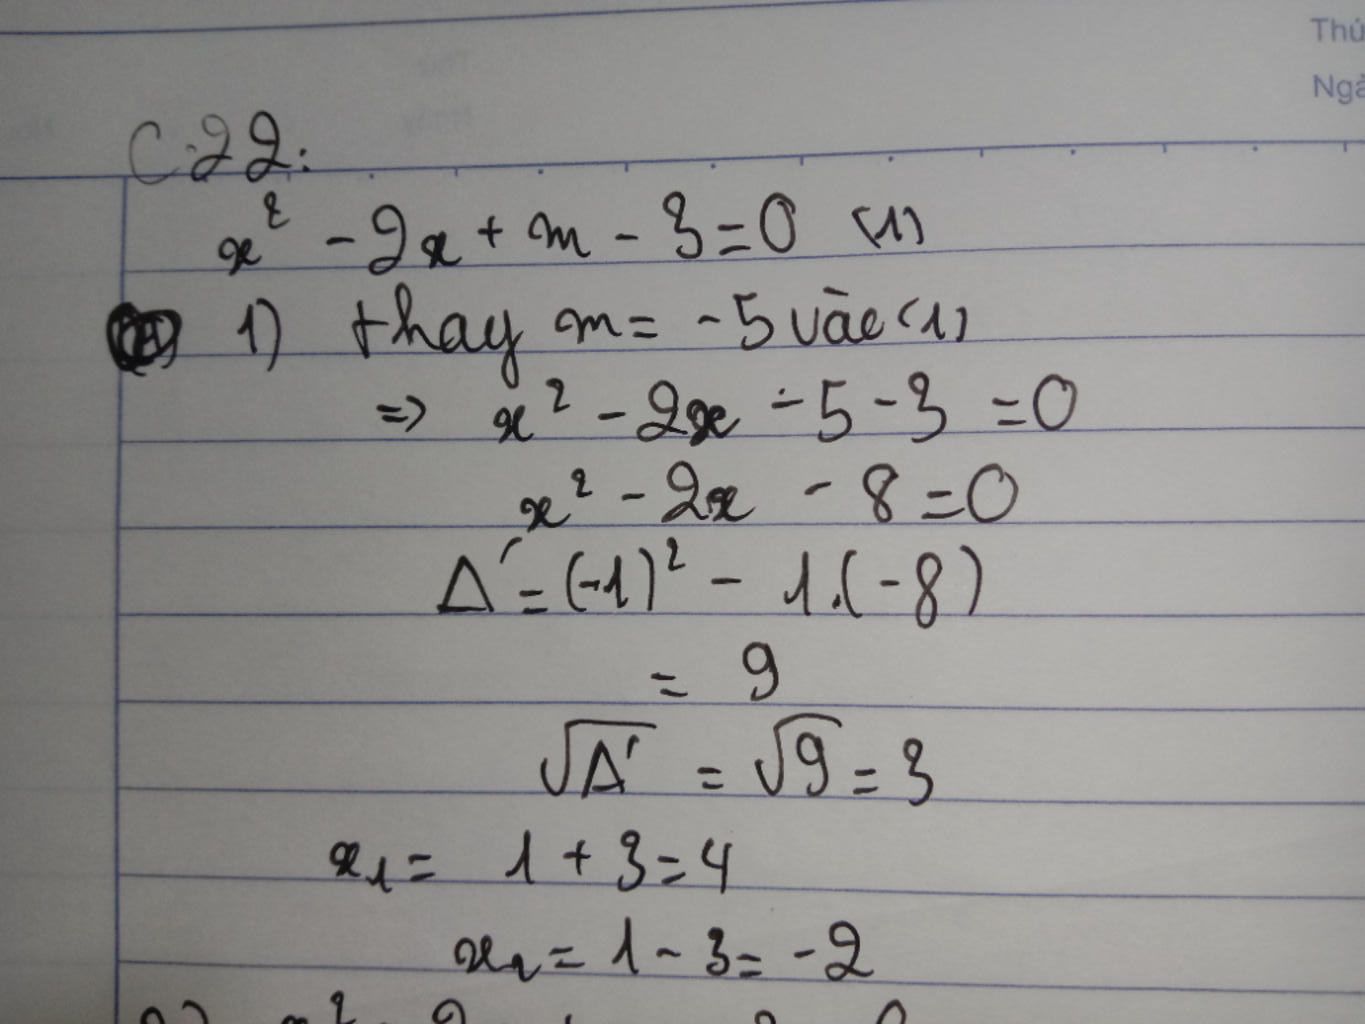 Thứ
Ngà
C.22:
x² - 2x + m - 3 = 0 (1)
1) thay m = -5 vào (1)
=> x² - 2x - 5 - 3 = 0
x² - 2x - 8 = 0
Δ' = (-1)² - 1.(-8)
= 9
√Δ' = √9 = 3
x₁ = 1 + 3 = 4
x₂ = 1 - 3 = -2